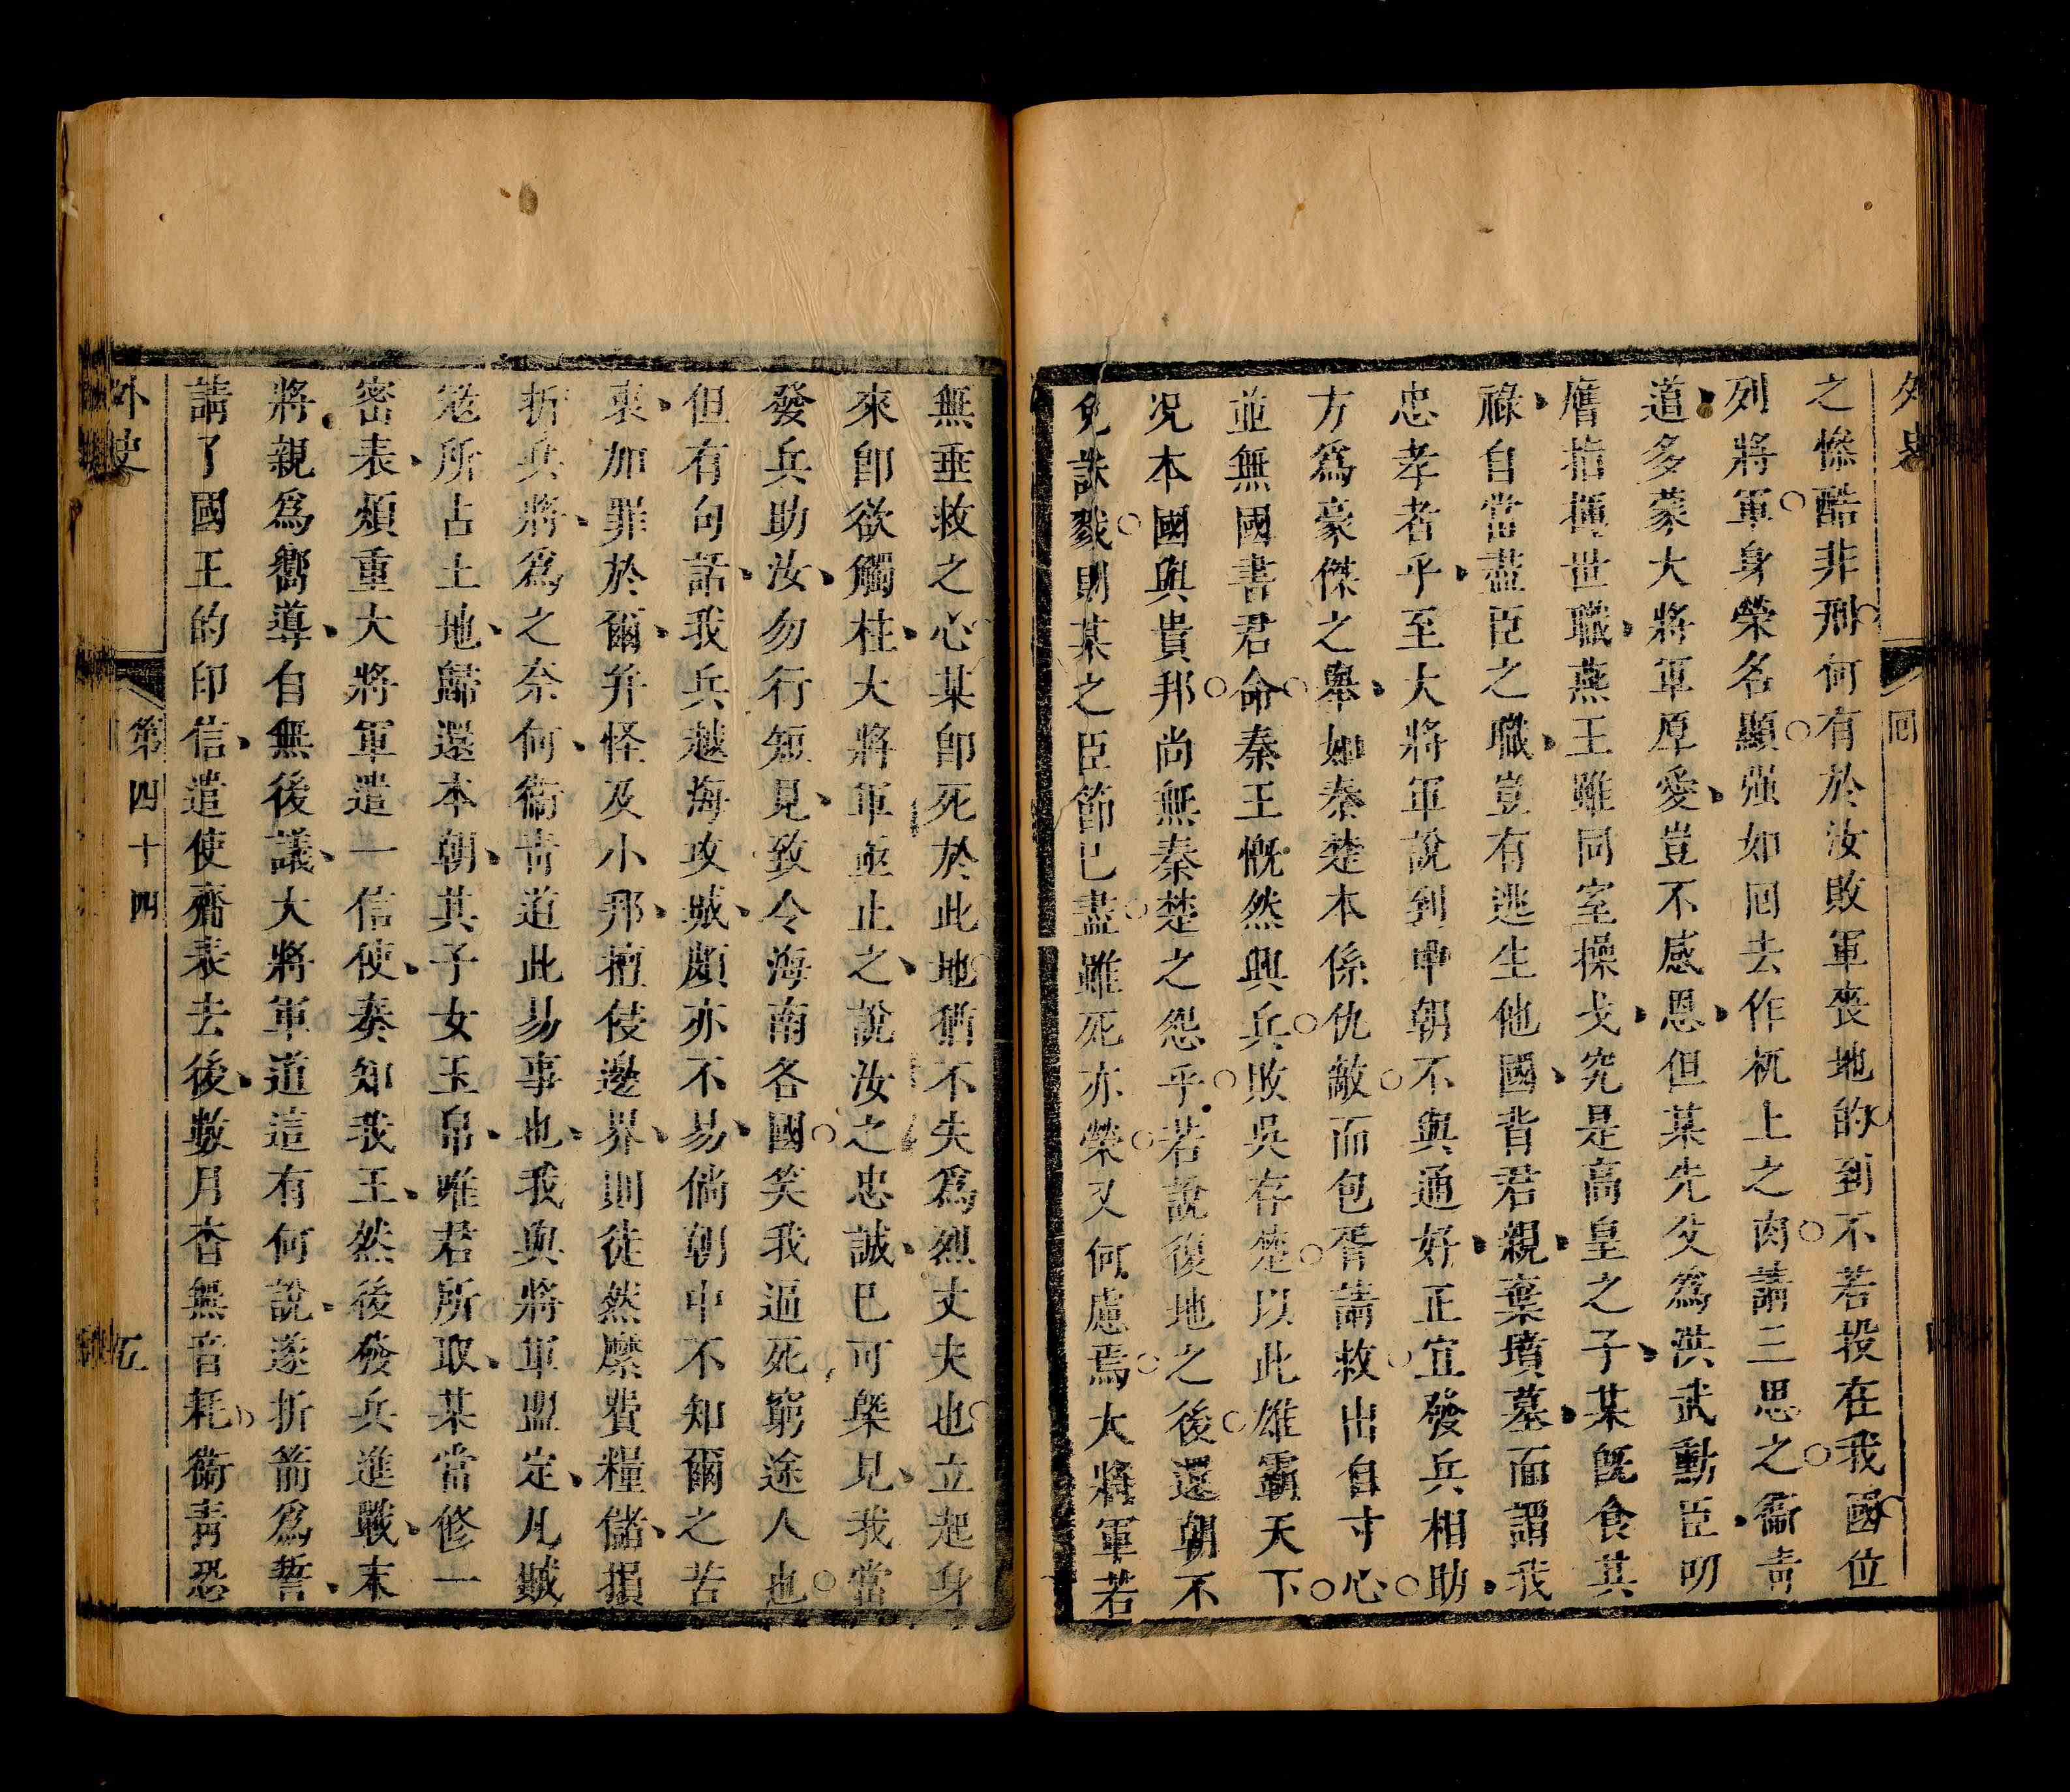 外史
回
之慘酷非刑何有於汝敗軍喪地的到不若投在我國位
列將軍身榮名顯强如回去作杌上之肉請三思之衞靑
道多蒙大將軍厚愛豈不感恩但某先父爲洪武勳臣叨
膺指揮世職燕王雖同室操戈究是高皇之子某旣食其
祿自當盡臣之職豈有逃生他國背君親棄墳墓而謂我
忠孝者乎至大將軍說到中朝不與通好正宜發兵相助
方爲豪傑之舉如秦楚本係仇敵而包胥請救出自寸心
並無國書君命秦王慨然興兵敗吳存楚以此雄霸天下
况本國與貴邦尚無秦楚之怨乎若說復地之後還朝不
免誅戮則某之臣節已盡雖死亦榮又何慮焉大將軍若
無垂救之心某卽死於此地猶不失爲烈丈夫也立起身
來卽欲觸柱大將軍亟止之說汝之忠誠已可槩見我當
發兵助汝勿行短見致令海南各國笑我逼死窮途人也
但有句話我兵越海攻城頗亦不易倘朝中不知爾之苦
衷加罪於爾幷怪及小邦擅侵邊界則徒然縻費糧儲損
折兵將爲之奈何衞靑道此易事也我與將軍盟定凡賊
寇所占土地歸還本朝其子女玉帛唯君所取某當修一
密表煩重大將軍遣一信使奏知我王然後發兵進戰末
將親爲嚮導自無後議大將軍道這有何說遂折箭爲誓
請了國王的印信遣使齎表去後數月杳無音耗衞靑恐
外史
第四十四
五